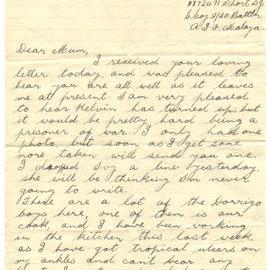 Short
A.I.F. Malaya
Dear Mum,
I received your loving
letter today, and was pleased to
hear you are all well as it leaves
me at present. I am very pleased
to hear Kelvin has turned up, but
it would be pretty hard being a
prisoner of war. I only had one
photo, but soon as I get some
more taken will send you one.
I dropped Ivy a line yesterday,
she will be thinking I'm never
going to write.
There are a lot of the Dorrigo
boys here, one of them is our
cook, and I have been working
in the kitchen this last week,
as I have got tropical ulsers on
my ankles and can't bear any